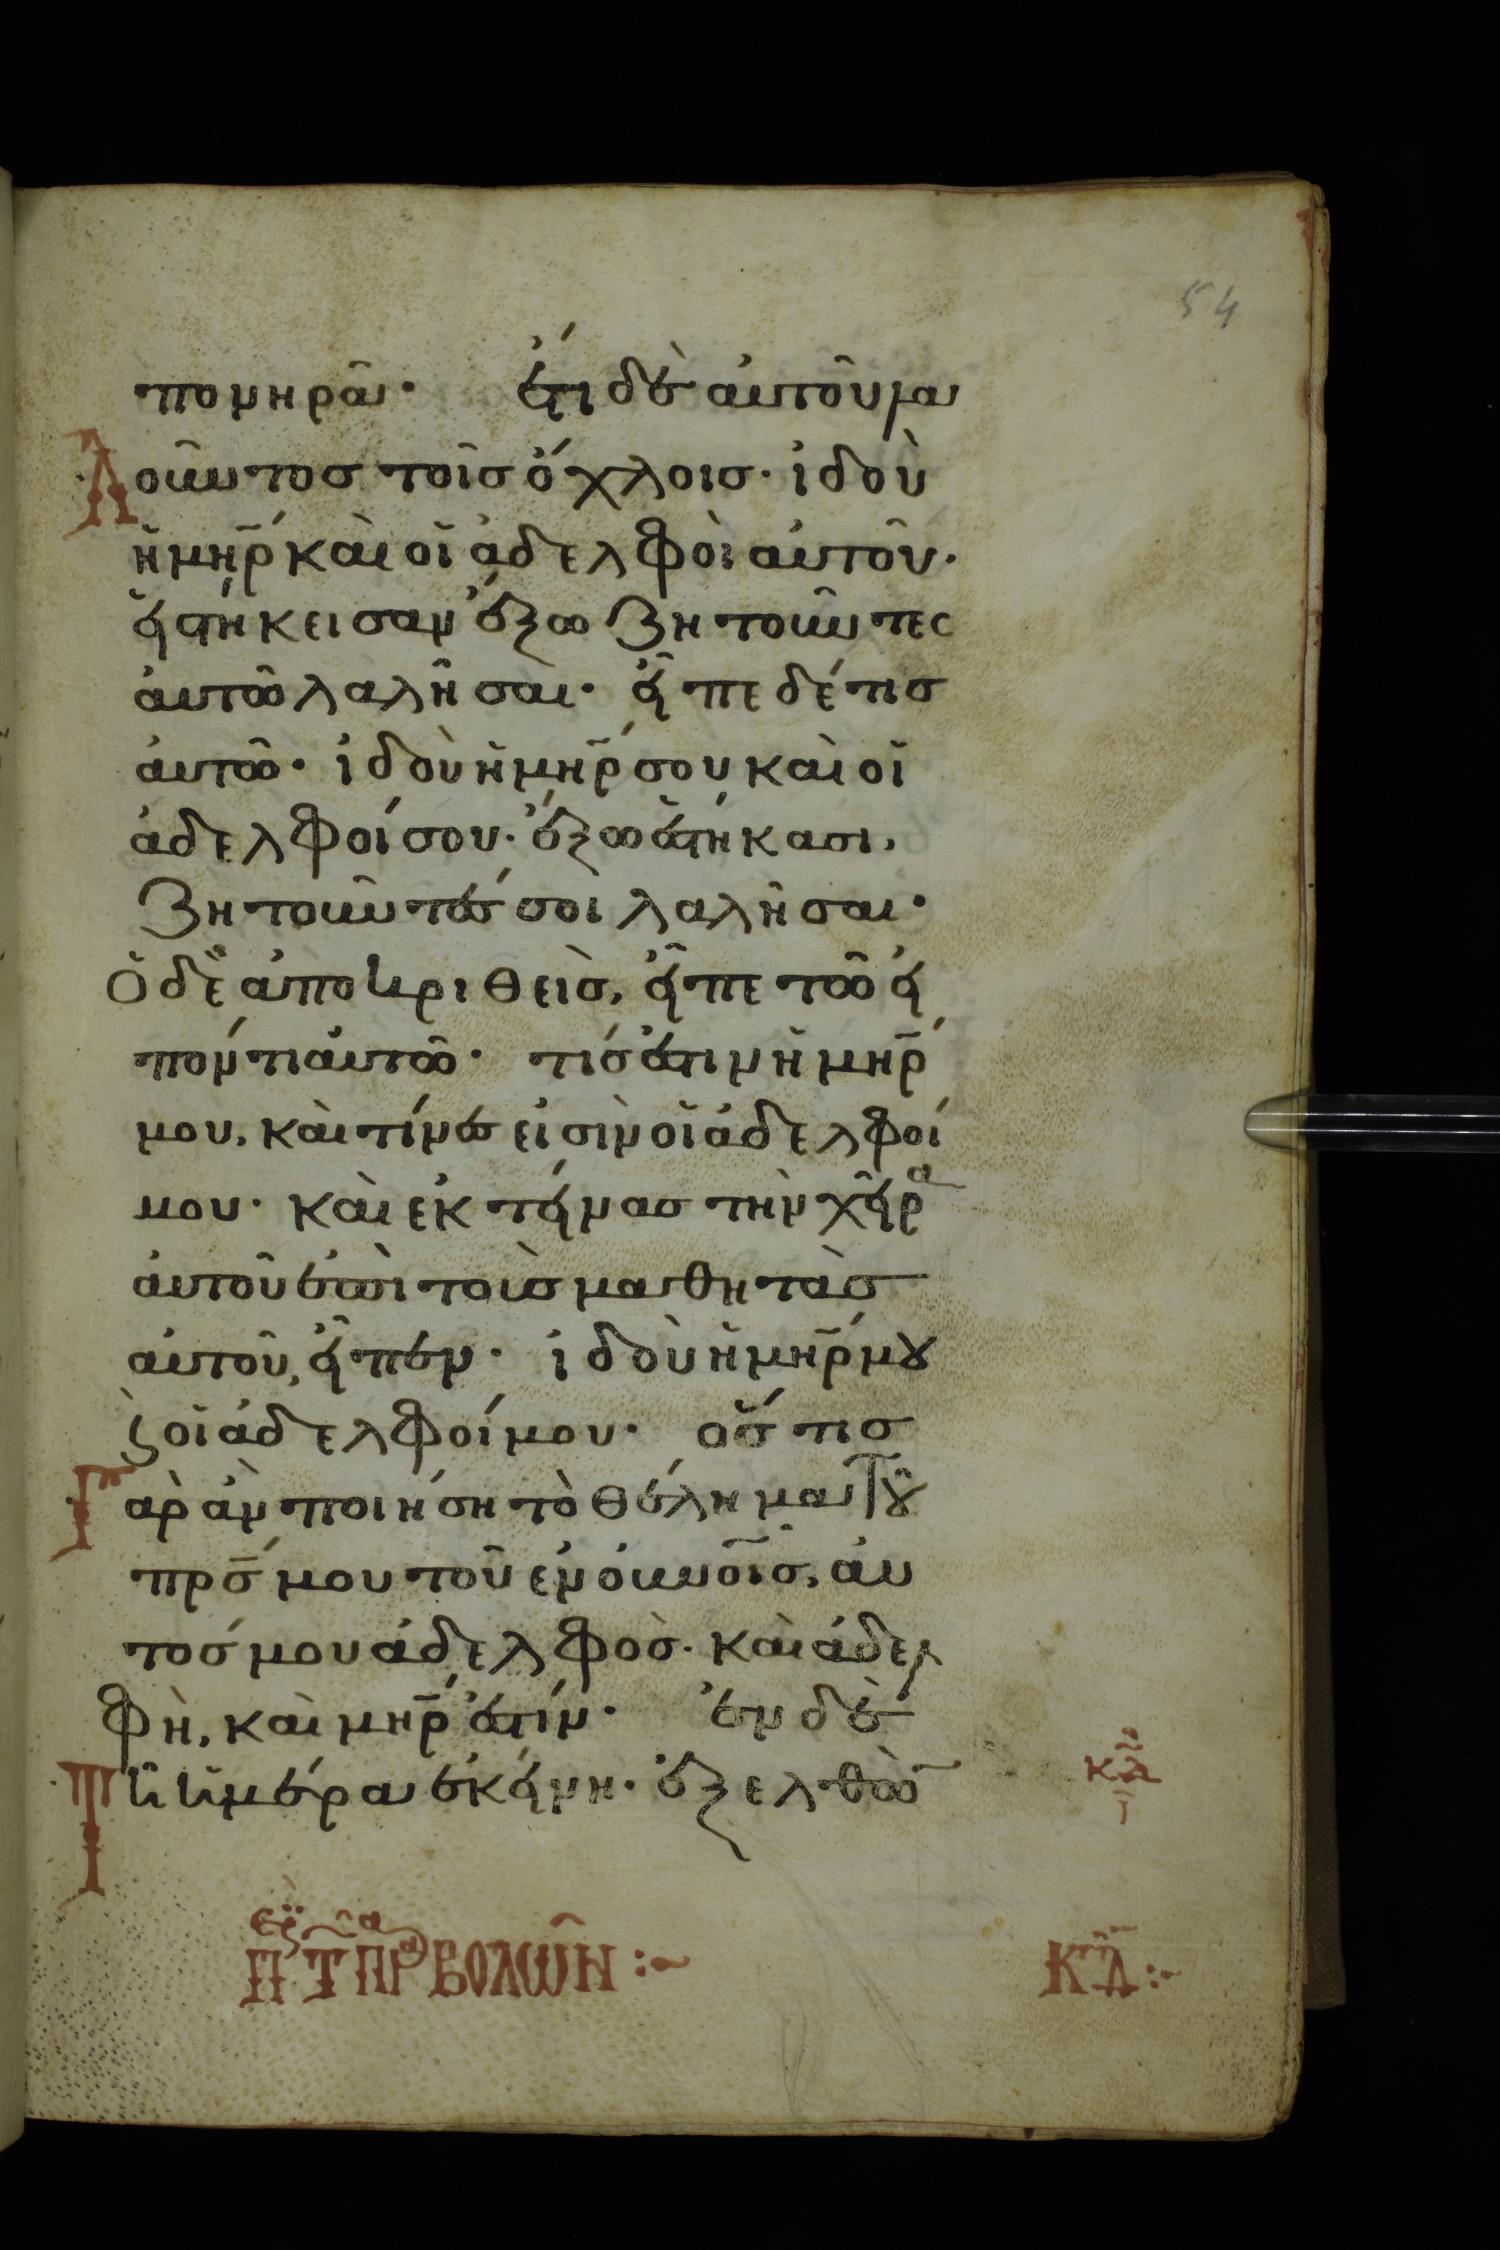 54
πονηρᾶ· ἔτι δὲ αὐτοῦ λα
Λοῦντος τοῖς ὄχλοις· ἰδοὺ
ἡ μη̅ρ καὶ οἱ ἀδελφοὶ αὐτοῦ·
εἱστήκεισαν ἔξω ζητοῦντες
αὐτῶ λαλῆσαι· εἶπε δέ τις
αὐτῶ· ἰδοὺ ἡ μη̅ρ σου καὶ οἱ
ἀδελφοί σου· ἔξω ἑστήκασι,
ζητοῦντές σοι λαλῆσαι·
Ὁ δὲ ἀποκριθεὶς, εἶπε τῶ εἰ
πόντι αὐτῶ· τίς ἐστιν ἡ μη̅ρ
μου, καὶ τίνες εἰσὶν οἱ ἀδελφοί
μου· καὶ ἐκτείνας τὴν χεῖρα
αὐτοῦ ἐπὶ τοὺς μαθητὰς
αὐτοῦ, εἶπεν· ἰδοὺ ἡ μη̅ρ μου
ϗ οἱ ἀδελφοί μου· ὅστις
Γαρ ἂν ποιήση τὸ θέλημα τοῦ
πρ̅ς μου τοῦ ἐν ουνο̅ις, αὐ
τός μου ἀδελφὸς· καὶ ἀδελ
φὴ, καὶ μη̅ρ ἐστίν· ἐν δὲ
Τῆ ἡμέρα ἐκείνη· ἐξελθὼ̅
κδ
ι̅
περὶ τ̅ πραβολῶν :~
ΚΔ :~